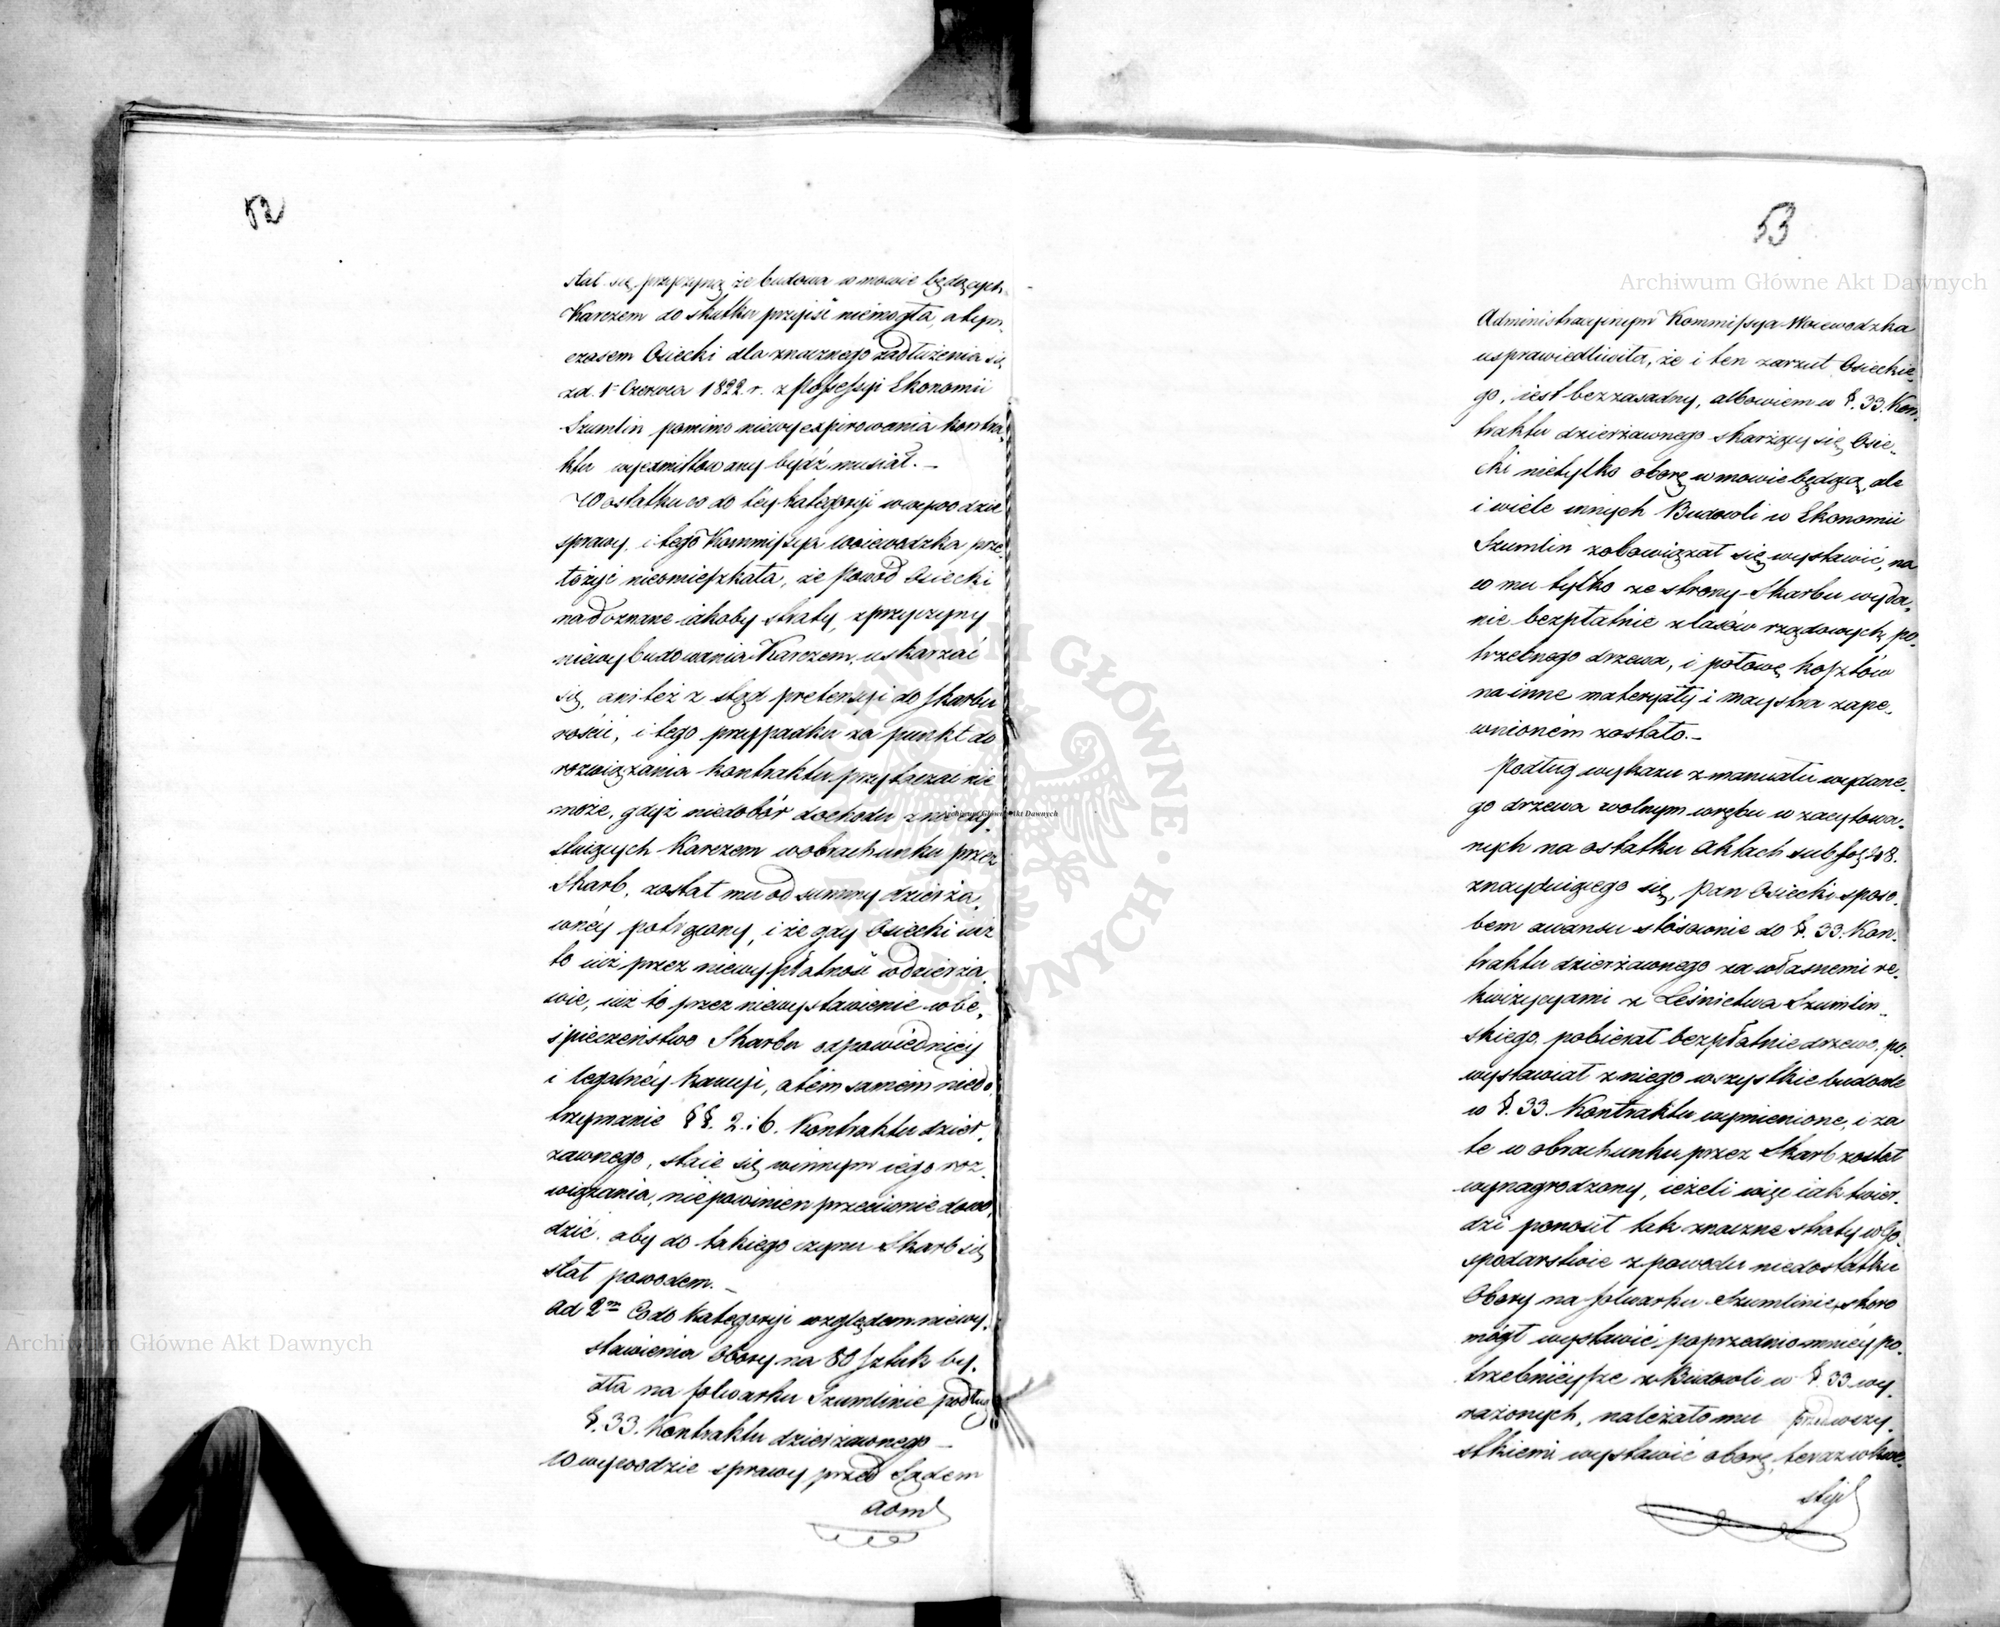 52
stał się przyczyną że budowa w mowie będących
Karczem do skutku przyiść niemogła, a tym
czasem Osiecki dla znacznego zadłużenia się
zd. 1º Czerwca 1822. r. z Possessyi Ekonomii
Szumlin pomimo niewyexpirowania kontra-
ktu wyexmittowany bydź musiał.—
W ostatku co do tey kategoryi w wywodzie
sprawy, i tego Kommissya woiewodzka prze-
łożyć nieomieszkała, że Powód Osiecki
na doznane iakoby straty, z przyczyny
niewybudowania Karczem, uskarżać
się, ani też z stąd pretensyi do Skarbu
rościć, i tego przypadku za punkt do
rozwiązania kontraktu przytaczać nie
może, gdyż niedobór dochodu z nieexy-
stuiących Karczem w obrachunku przez
Skarb, został mu od summy dzierża-
wnéy potrącony, i że gdy Osiecki iuż
to iuż przez niewypłatność w dzierża-
wie, iuż to przez niewystawienie w be-
śpieczeństwo Skarbu odpowiedniéy
i legalnéy kaucyi, a tém samém niedo-
trzymanie §§. 2. i 6. Kontraktu dzier-
żawnego, staie się winnym iego roz-
wiązania, niepowinien przeciwnie dowo-
dzić, aby do takiego czynu Skarb się
stał powodem.—
Ad 2m Co do Kategoryi względem niewy-
stawienia Obory na 80 sztuk by-
dła na folwarku Szumlinie podług
§. 33. Kontraktu dzierżawnego—
W wywodzie sprawy przed Sądem
Adm
53
Administracyinym Kommissya Woiewodzka
usprawiedliwiła, że i ten zarzut Osieckie-
go, iest bezzasadny, albowiem w §. 33. Kon-
traktu dzierżawnego skarżący się Osie-
cki nietylko oborę w mowie będącą, ale
i wiele innych Budowli w Ekonomii
Szumlin zobowiązał się wystawić, na
co mu tylko ze strony Skarbu wyda-
nie bezpłatnie z lasów rządowych po-
trzebnego drzewa, i połowę kosztów
na inne materyały i maystra zape-
wnioném zostało.—
Podług wykazu z manuału wydane-
go drzewa wolnym wrębu w zacytowa-
nych na ostatku Aktach sub fol. 48.
znayduiącego się, Pan Osiecki sposo-
bem awansu stósownie do §. 33. Kon-
traktu dzierżawnego za własnemi re-
kwizycyami z Leśnictwa Szumlin-
skiego, pobierał bezpłatnie drzewo, po-
wystawiał z niego wszystkie budowle
w §. 33. Kontraktu wymienione, i za
te w obrachunku przez Skarb został
wynagrodzony, ieżeli więc iak twier-
dzi ponosił tak znaczne straty w Go-
spodarstwie z powodu niedostatku
Obory na folwarku Szumlinie, skoro
mógł wystawić poprzednio mniéy po-
trzebnieysze z Budowli w §. 33 wy-
rażonych, należało mu przed wszy-
stkiemi wystawić oborę, teraz w kwe-
styi
Archiwum Główne Akt Dawnych
Archiwum Główne Akt Dawnych
Archiwum Główne Akt Dawnych
ARCHIWUM GŁÓWNE AKT DAWNYCH